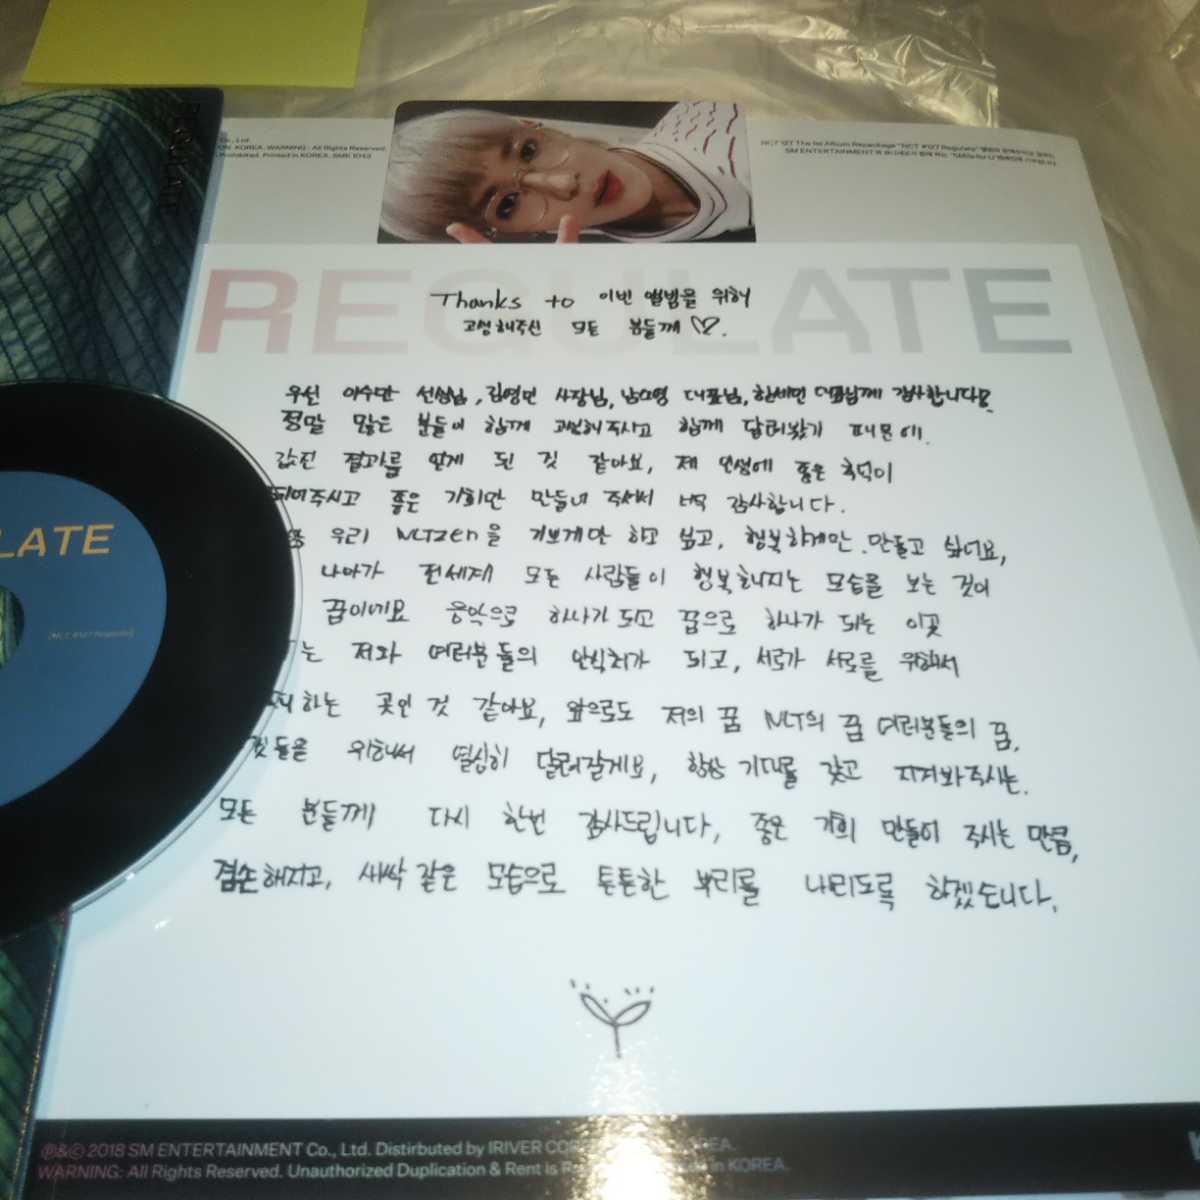 REGULATE
Co., Ltd
KOREA. WARNING: All Rights Reserved.
Prohibited. Printed in KOREA. SMK 1043
NCT 127 The 1st Album Repackage "NCT #127 Regulate"
SM ENTERTAINMENT
REGULATE
Thanks to 이번 앨범을 위해
고생해주신 모든 분들께 ♡.
우선 이수만 선생님, 김영민 사장님, 남소영 대표님, 한세민 대표님께 감사합니다!
정말 많은 분들이 함께 고생해주시고 함께 달려왔기 때문에.
값진 결과를 얻게 된 것 같아요, 제 인생에 좋은 흙덕이
되어주시고 좋은 기회만 만들어 주셔서 너무 감사합니다.
우리 NCTzen을 기쁘게만 하고 싶고, 행복하게만 만들고 싶어요,
나아가 전세계 모든 사람들이 행복해지는 모습을 보는 것이
꿈이에요 음악으로 하나가 되고 꿈으로 하나가 되는 이곳
는 저와 여러분들의 안식처가 되고, 서로가 서로를 위해서
하는 곳인 것 같아요, 앞으로도 저의 꿈 NCT의 꿈 여러분들의 꿈,
것들을 위해서 열심히 달려갈게요, 항상 기대를 갖고 지켜봐주시는.
모든 분들께 다시 한번 감사드립니다, 좋은 기회 만들어 주시는 만큼,
겸손해지고, 새싹 같은 모습으로 튼튼한 뿌리를 내리도록 하겠습니다.
LATE
[NCT #127 Regulate]
℗&© 2018 SM ENTERTAINMENT Co., Ltd. Distirbuted by IRIVER KOREA.
WARNING: All Rights Reserved. Unauthorized Duplication & Rent is in KOREA.